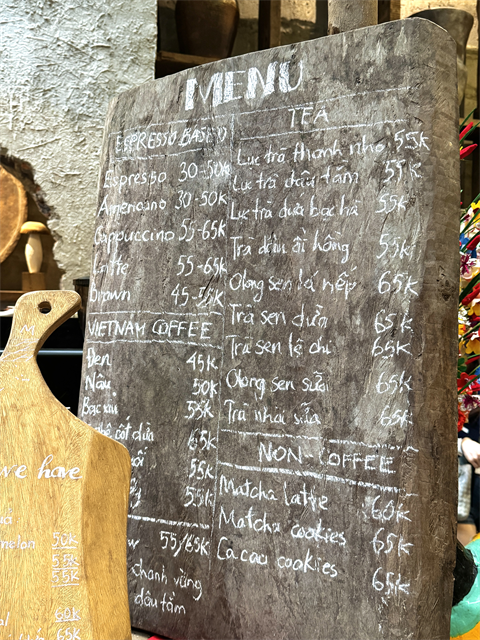 MENU
ESPRESSO BASED
Espresso 30-50k
Americano 30-50k
Cappuccino 55-65k
Latte 55-65k
Brown 45-55k
VIETNAM COFFEE
Đen 45k
Nâu 50k
Bạc xỉu 55k
cốt dừa 65k
55k
55k
55/65k
chanh vừng
dâu tằm
TEA
Lục trà thanh nho 55k
Lục trà dâu tằm 55k
Lục trà dưa bạc hà 55k
Trà dâu ổi hồng 55k
Olong sen lá nếp 65k
Trà sen dừa 65k
Trà sen lệ chi 65k
Olong sen sữa 65k
Trà nhài sữa 65k
NON-COFFEE
Matcha latte 60k
Matcha cookies 65k
Ca cao cookies 65k
we have
melon 50k
55k
55k
60k
65k